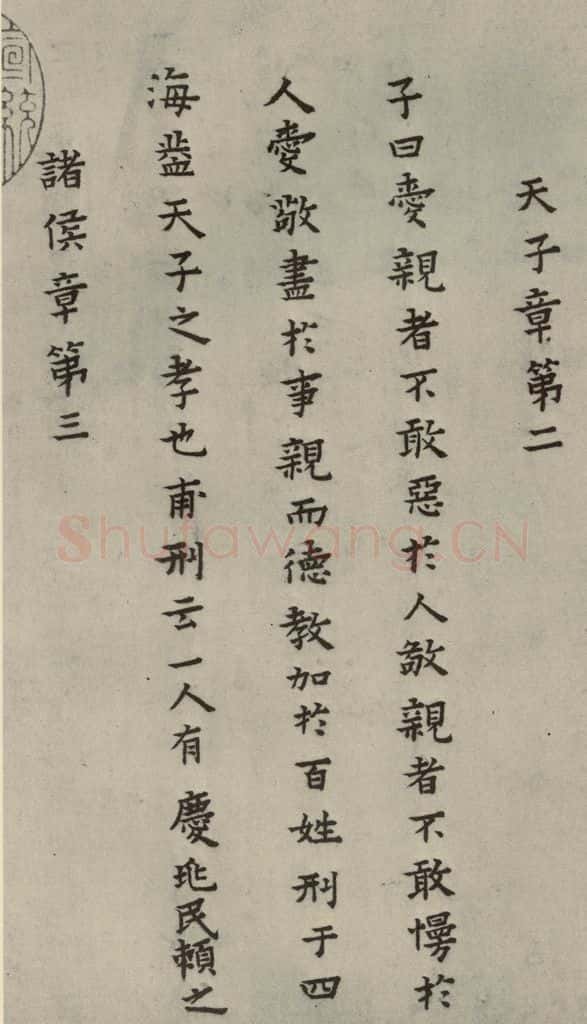 天子章第二
子曰愛親者不敢惡於人敬親者不敢慢於
人愛敬盡於事親而德教加於百姓刑于四
海盖天子之孝也甫刑云一人有慶兆民賴之
諸侯章第三
Shufawang.CN